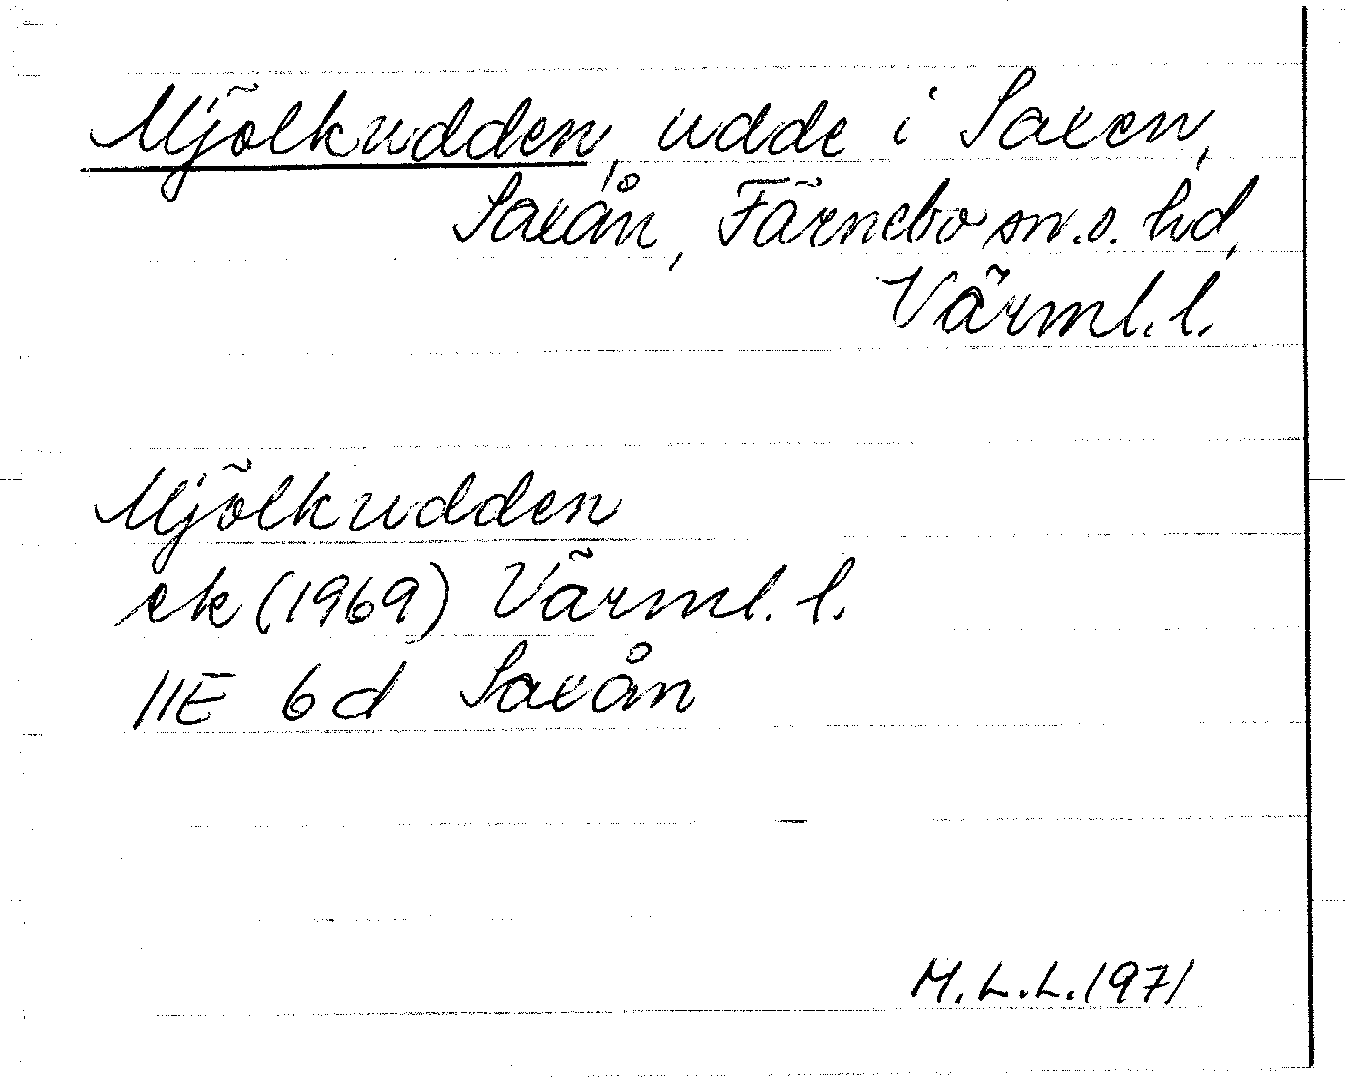 Mjölkudden, udde i Saxen,
Saxån, Färnebo sn.o. hd,
Värml. l.
Mjölkudden
ek (1969) Värml. l.
11E 6d Saxån
M.L.L. 1971